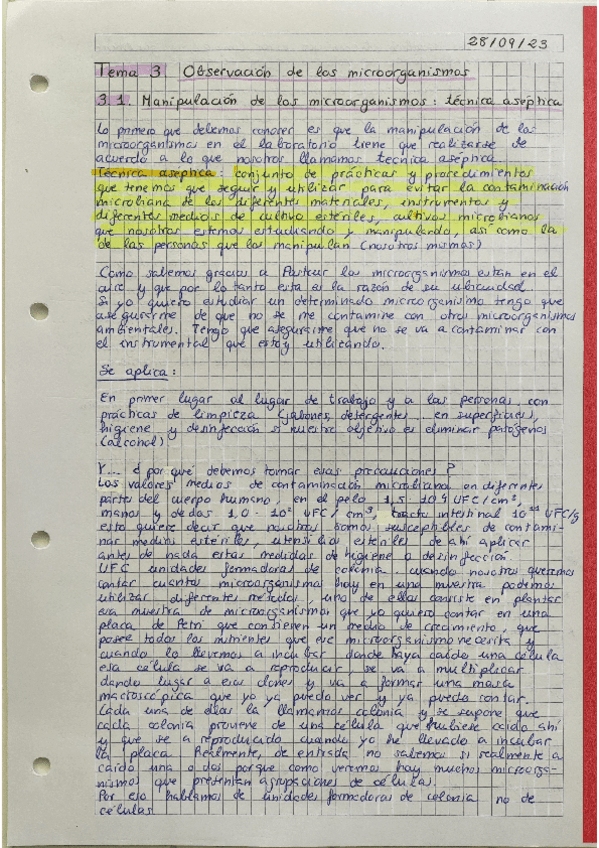 28/09/23
Tema 3. Observación de los microorganismos
3.1. Manipulación de los microorganismos: técnica aséptica
Lo primero que debemos conocer es que la manipulación de los
microorganismos en el laboratorio tiene que realizarse de
acuerdo a lo que nosotros llamamos técnica aséptica.
Técnica aséptica: conjunto de prácticas y procedimientos
que tenemos que seguir y utilizar para evitar la contaminación
microbiana de los diferentes materiales, instrumentos y
diferentes medios de cultivo estériles, cultivos microbianos
que nosotros estemos estudiando y manipulando, así como la
de las personas que los manipulan (nosotros mismos)
Como sabemos gracias a Pasteur los microorganismos están en el
aire y que por lo tanto esta es la razón de su ubicuidad.
Si yo quiero estudiar un determinado microorganismo tengo que
asegurarme de que no se me contamine con otros microorganismos
ambientales. Tengo que asegurarme que no se va a contaminar con
el instrumental que estoy utilizando.
Se aplica:
En primer lugar al lugar de trabajo y a las personas, con
prácticas de limpieza (jabones, detergentes... en superficies),
higiene y desinfección si nuestro objetivo es eliminar patógenos
(alcohol).
Y... ¿por qué debemos tomar esas precauciones?
Los valores medios de contaminación microbiana en diferentes
partes del cuerpo humano, en el pelo 1,5 · 10⁴ UFC/cm²,
manos y dedos 1,0 · 10² UFC/cm³, tracto intestinal 10¹¹ UFC/g
esto quiere decir que nosotros somos susceptibles de contami-
nar medios estériles, utensilios estériles de ahí aplicar
antes de nada estas medidas de higiene o desinfección.
UFC unidades formadoras de colonia. cuando nosotros queremos
contar cuantos microorganismos hay en una muestra podemos
utilizar diferentes métodos, uno de ellos consiste en plantar
esa muestra de microorganismos que yo quiero contar en una
placa de Petri que contienen un medio de crecimiento, que
posee todos los nutrientes que ese microorganismo necesita y
cuando lo llevemos a incubar donde haya caído una célula
esa célula se va a reproducir, se va a multiplicar
dando lugar a esos clones y va a formar una masa
macroscópica que yo ya puedo ver y ya puedo contar.
Cada una de ellas la llamamos colonia y se supone que
cada colonia proviene de una célula que hubiese caído ahí
y que se a reproducido cuando yo he llevado a incubar
la placa. Realmente, de entrada no sabemos si realmente a
caído una o dos porque como veremos hay muchos microorga-
nismos que presentan agrupaciones de células.
Por eso hablamos de unidades formadoras de colonia no de
células.